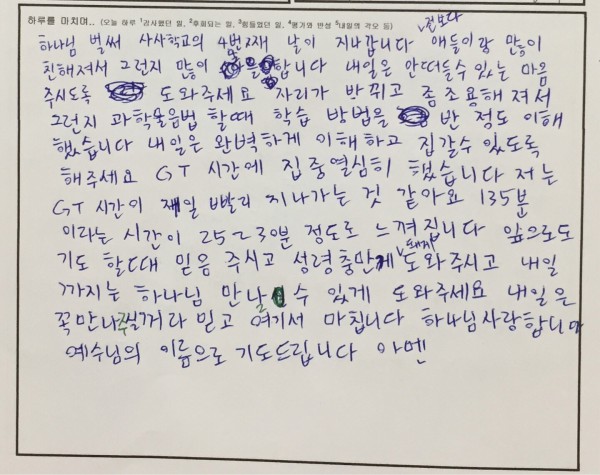 하루를 마치며.. (오늘 하루 ¹감사했던 일, ²후회되는 일, ³힘들었던 일, ⁴평가와 반성 ⁵내일의 각오 등)
첫날보다
하나님 벌써 사사학교의 4번째 날이 지나갑니다 애들이랑 많이
친해져서 그런지 많이 합니다 내일은 안떠들수있는 마음
주시도록 도와주세요 자리가 바뀌고 좀 조용해져서
그런지 과학울음법 할때 학습 방법을 반 정도 이해
했습니다 내일은 완벽하게 이해하고 집갈수 있도록
해주세요 GT 시간에 집중열심히 했습니다 저는
GT 시간이 제일 빨리 지나가는 것 같아요 135분
이라는 시간이 25~30분 정도로 느껴집니다 앞으로도
기도 할때 믿음 주시고 성령충만케 되게 도와주시고 내일
까지는 하나님 만날 수 있게 도와주세요 내일은
꼭만나주실꺼라 믿고 여기서 마칩니다 하나님사랑합니다
예수님의 이름으로 기도드립니다 아멘